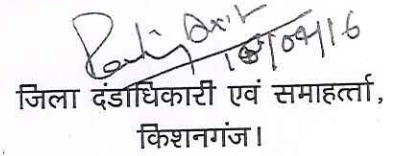 18/04/16
जिला दंडाधिकारी एवं समाहर्त्ता,
किशनगंज।